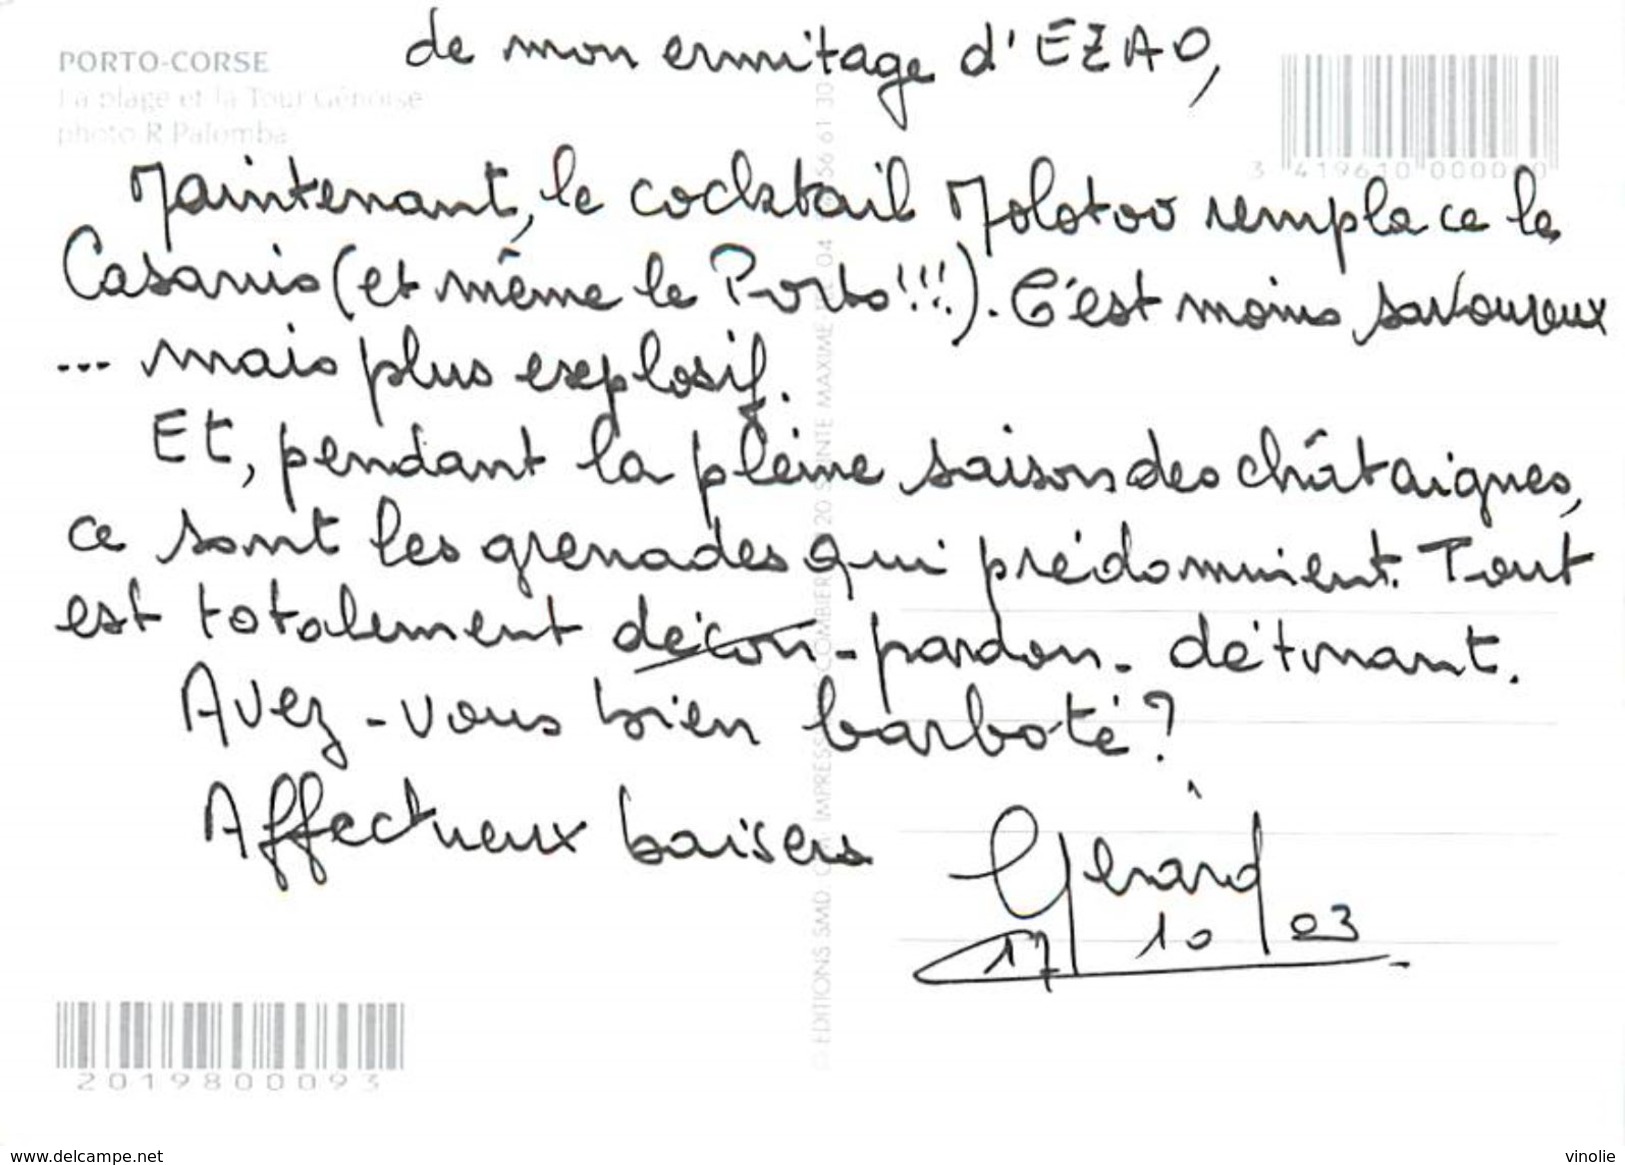 de mon ermitage d'EZAO,
PORTO-CORSE
La plage et la Tour Génoise
photo R Palomba
3 419610 000000
Maintenant, le cocktail Molotov remplace le
Casanis (et même le Porto!!!). C'est moins savoureux
... mais plus explosif.
Et, pendant la pleine saison des châtaignes,
ce sont les grenades qui prédominent. Tout
est totalement décon - pardon - détonant.
Avez-vous bien barboté ?
Affectueux baisers
Gérard
17 10 03
© EDITIONS SMD. IMPRESS COMBIER 20 SAINTE MAXIME TEL 04 56 61 30
2019800093
www.delcampe.net
vinolie